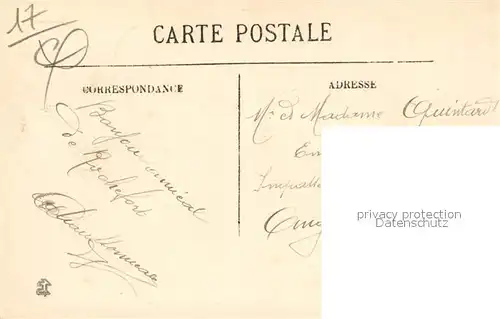 17
CARTE POSTALE
CORRESPONDANCE
Bonjour amical
de Rochefort
ADRESSE
Mr et Madame Quintard
privacy protection
Datenschutz